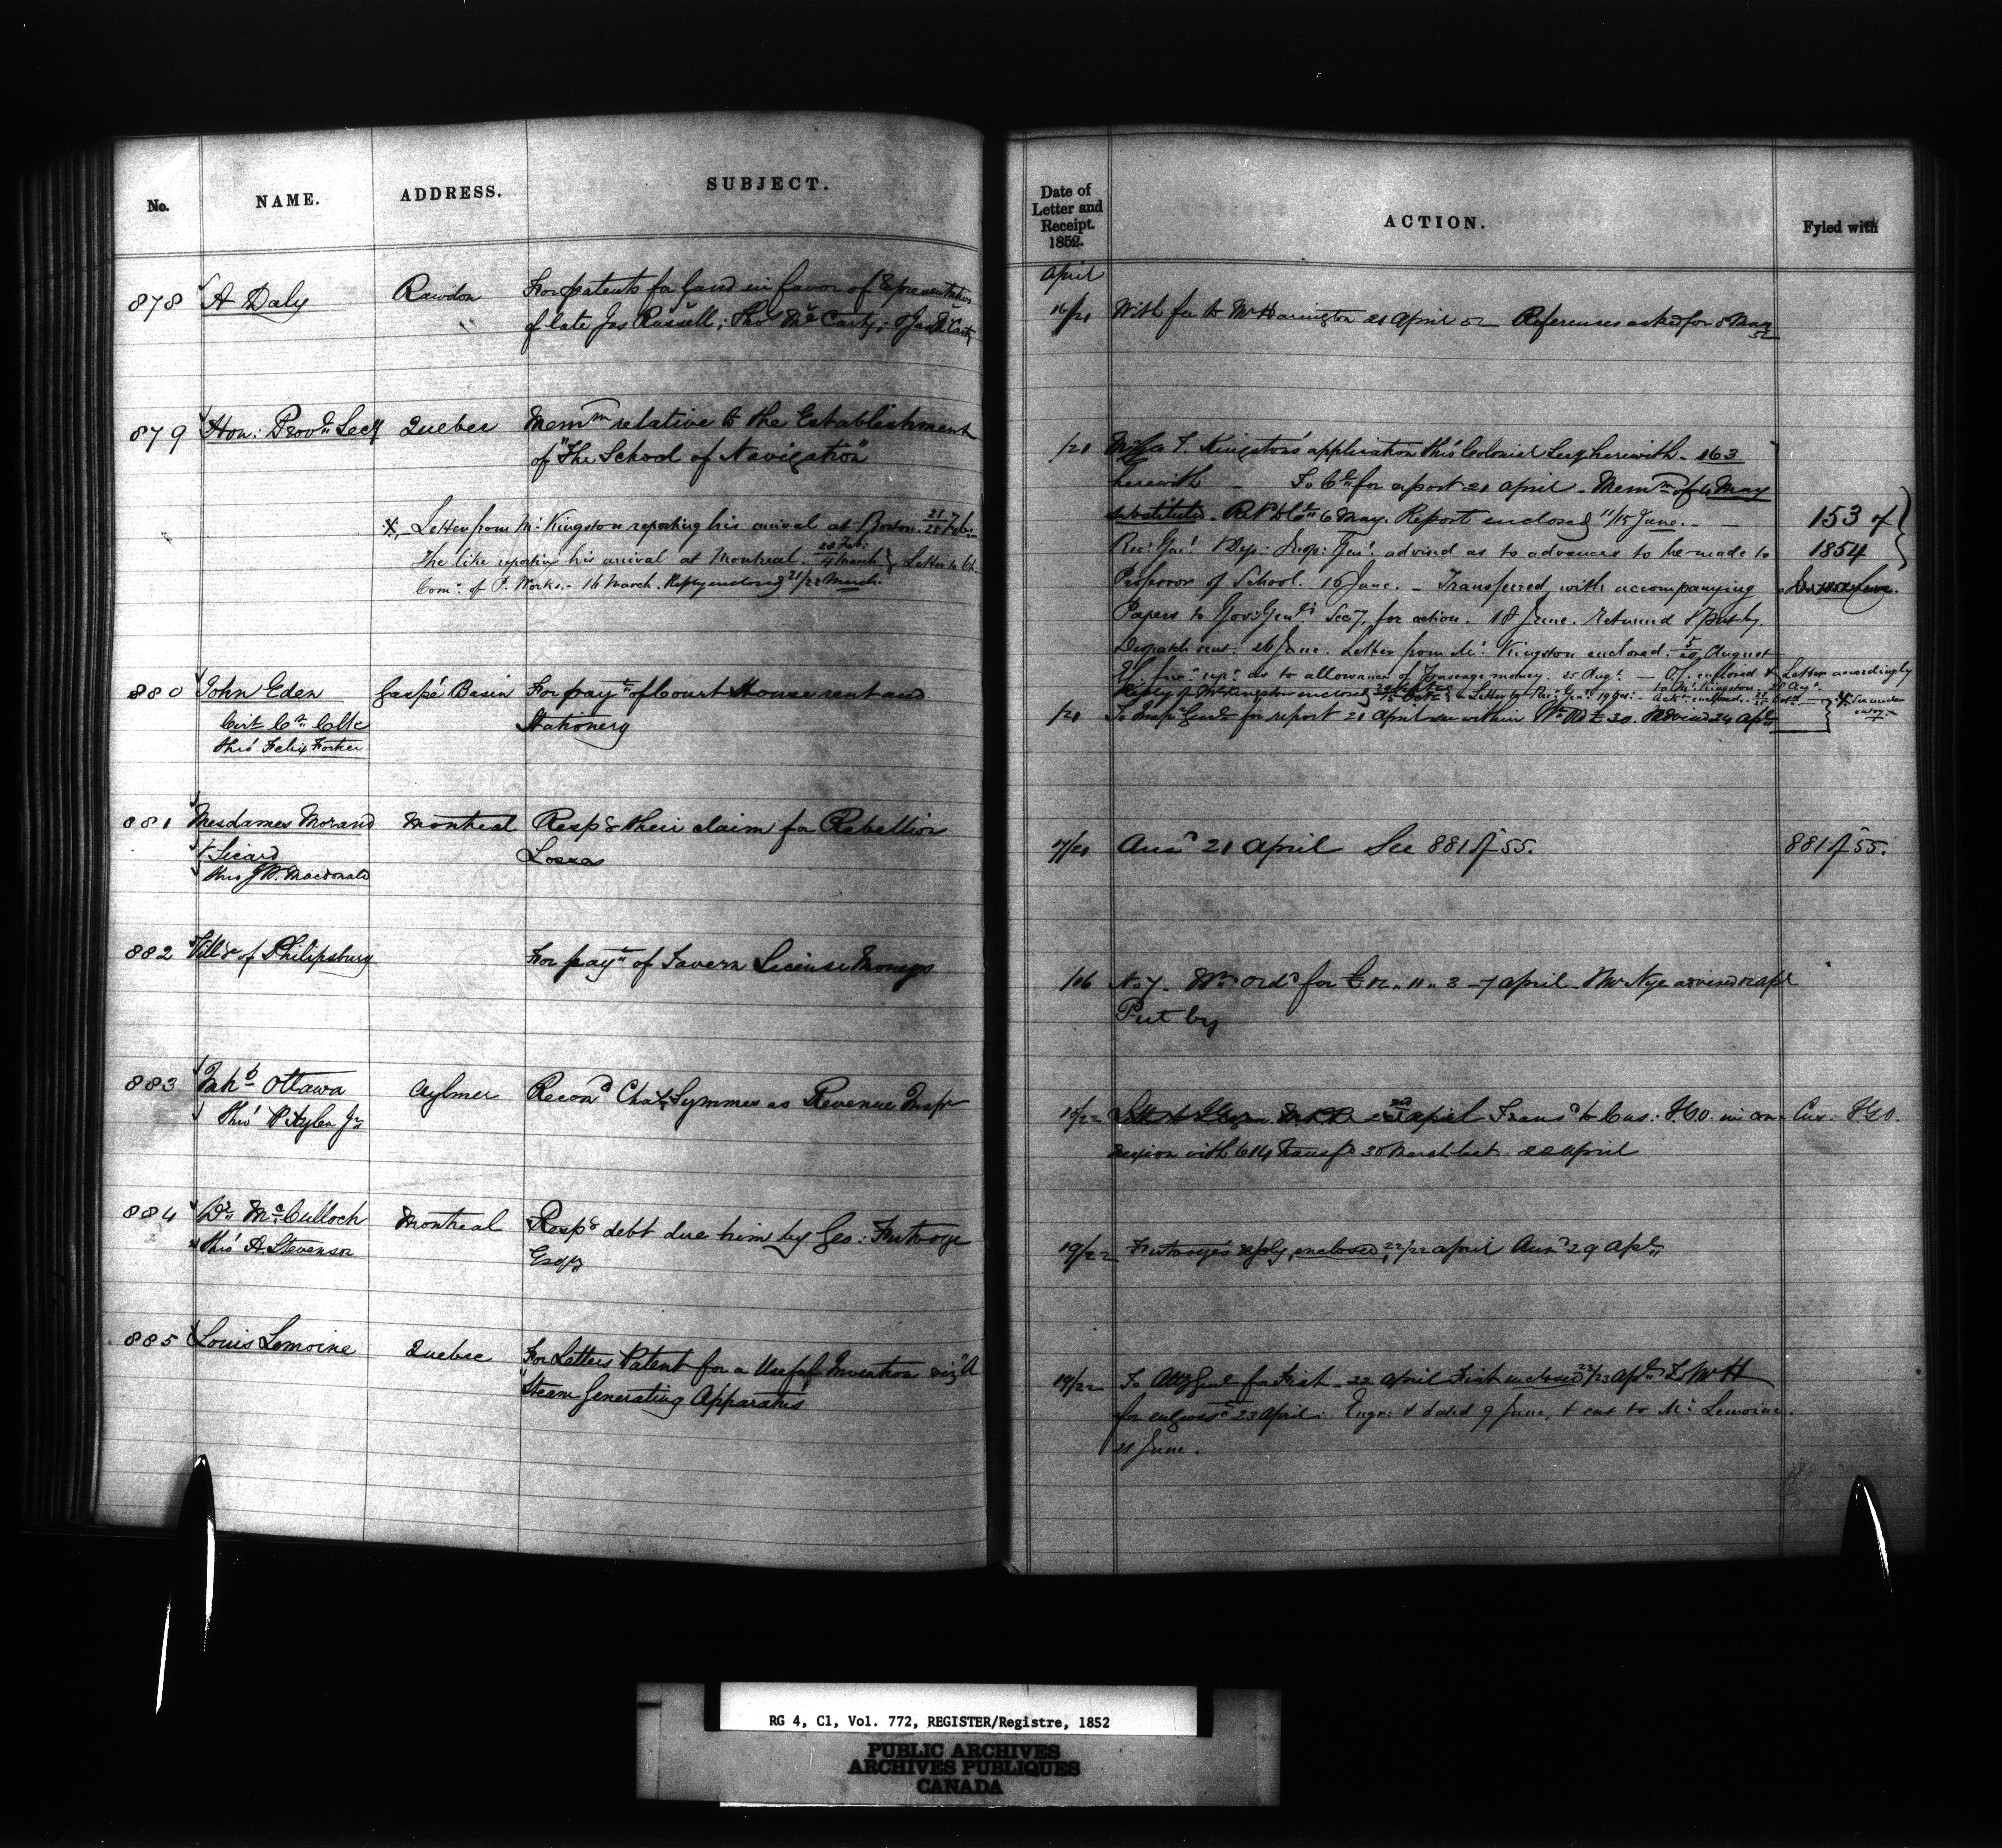 No.
NAME.
ADDRESS.
SUBJECT.
878
A Daly
Rawdon
For patents for Land in favor of
of late Jas Russell; Thos McCarty;
879
Hon: Provl Secy
Quebec
Memm relative to the Establishment
of "The School of Navigation"
Letter from Mr Kingston reporting his arrival at Boston. 21/25 Feb
The like reporting his arrival at Montreal. 28 Feb: / 4 March Letter to Ch:
Com: of P. Works. - 16 March. Reply enclosed 21/22 March.
880
John Eden
Gaspé Basin
For payt of Court House rent and
Cirt Ct Clk
Stationery
thro' Felix Fortier
881
Mesdames Morand
Montreal
Respg their claim for Rebellion
& Sicard
Losses
thro J W. Macdonald
882
Villge of Philipsburg
For payt of Tavern License Moneys
883
Inhts Ottawa
Aylmer
Recomd Chas Symmes as Revenue Inspr
Thro'
884
Dr McCulloch
Montreal
Respg debt due him by Geo: Futvoye
thro' A. Stevenson
Esqr
885
Louis Lemoine
Quebec
For Letters Patent for a Useful Invention viz "A
Steam Generating Apparatus"
Date of
Letter and
Receipt.
1852.
ACTION.
Fyled with
April
16/21
With fee to Mr Harington 21 April 52 References asked for 5 May
52
/20
Kingston's application thro' Colonial Secy herewith - 163
herewith - To Ct for report 21 April - Memm of 4 May
substituted - 6 May. Report enclosed 11/15 June. -
153 of
Rec: Genl Dep: Insp: Genl advised as to advances to be made to
1854
Professor of School. 16 June. - Transferred with accompanying
Papers to Gov: Genl's Secy, for action. 18 June. Returned & Put by.
Despatch sent. 26 June. Letter from Mr Kingston enclosed. 5/20 August
as to allowance of Passage money. 25 Augt - enclosed & Letter accordingly
to Mr Kingston
Reply of Mr Kingston enclosed
/20
To Inspr Genl for report 21 April 30. Advised 24 Apl
See under
17/20
Ansd 21 April See 881 of 55.
881 of 55.
/06
Ord for £12 " 11 " 3 - 7 April - Mr Nye advised
Put by
19/22
April Transd to Cus: H.O. in con-
Cus: H.O.
nexion with 614 Transfd 30 March last 22 April
19/22
Futvoye's reply, enclosed, 22/22 April Ansd 29 Apl
19/22
To Atty Genl for Fiat - 22 April Fiat enclosed 23/23 Apl To Mr H
for engrosst 23 April. Engr: & dated 9 June, & sent to Mr Lemoine.
21 June.
RG 4, C1, Vol. 772, REGISTER/Registre, 1852
PUBLIC ARCHIVES
ARCHIVES PUBLIQUES
CANADA